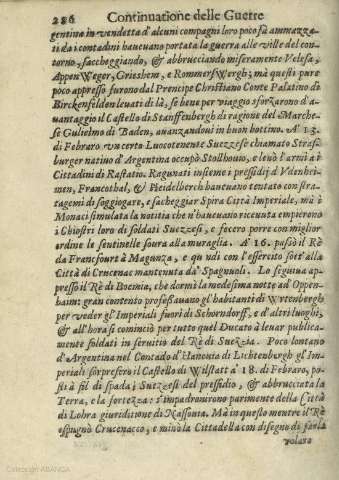 286 Continuatione delle Guerre
gentina in vendetta d'alcuni compagni loro poco fà ammazza-
ti da i contadini haueuano portata la guerra alle ville del con-
torno, saccheggiando, & abbrucciando miseramente Velesa,
Appen Weger, Griesheim, e RommersWergh; mà questi pure
poco appresso furono dal Prencipe Christiano Conte Palatino di
Birckenfelden leuati di là, se bene per viaggio sforzarono d'a-
uantaggio il Castello di Stanffenbergh di ragione del Marche-
se Gulielmo di Baden, auanzandoui in buon bottino. A' 13.
di Febraro vn certo Luocotenente Suezzese chiamato Stras-
burger natiuo d'Argentina occupò Stolhouio, e leuò l'armi à i
Cittadini di Rastatio. Ragunati insieme i presidij d'Vdenhei-
men, Francothal, & Heidelberch haueuano tentato con stra-
tagemi di soggiogare, e sacheggiar Spira Città Imperiale, mà i
Monaci simulata la notitia che n'haueuano riceuuta empierono
i Chiostri loro di soldati Suezzesi, e fecero porre con miglior
ordine le sentinelle soura alla muraglia. A' 16. passò il Rè
da Francfourt à Magonza, e quindi con l'essercito sott'alla
Città di Crucenac mantenuta da' Spagnuoli. Lo seguiua ap-
presso il Rè di Boemia, che dormì la medesima notte ad Oppen-
haim: gran contento professauano gl'habitanti di Wrtenbergh
per veder gl'Imperiali fuori di Schorndorff, e d'altri luoghi,
& all'hora si cominciò per tutto quel Ducato à leuar publica-
mente soldati in seruitio del Rè di Suezia. Poco lontano
d'Argentina nel Contado d'Hanouia di Lichtenburgh gl'Im-
periali sorpresero il Castello di Wilstatt à 18. di Febraro, po-
sti à fil di spada i Suezzesi del pressidio, & abbrucciata la
Terra, e la fortezza: s'impadronirono parimente della Città
di Lohra giuriditione di Nassouia. Mà in questo mentre il Rè
espugnò Crucenacco, e minò la Cittadella con disegno di farla
volare
Colección ABANCA